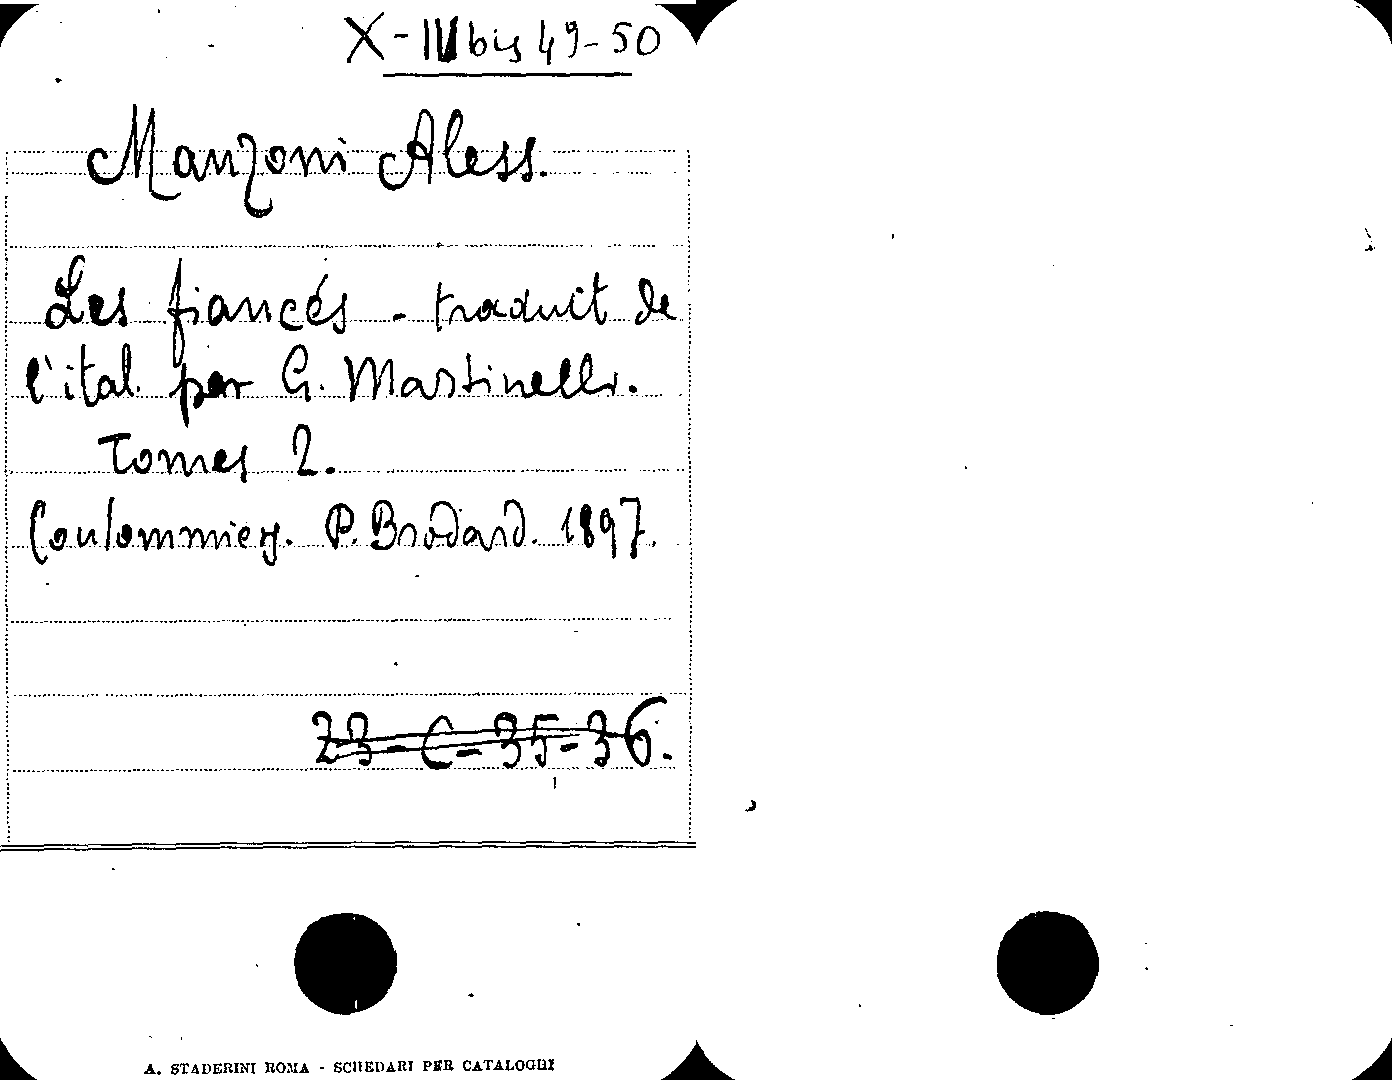 X - IV bis 49-50
Manzoni Aless.
Les fiancés - traduit de
l'ital. par G. Mastinelli.
Tomes 2.
Coulommiers. P. Brodard. 1897.
23-C-35-36.
A. STADERINI ROMA - SCHEDARI PER CATALOGHI